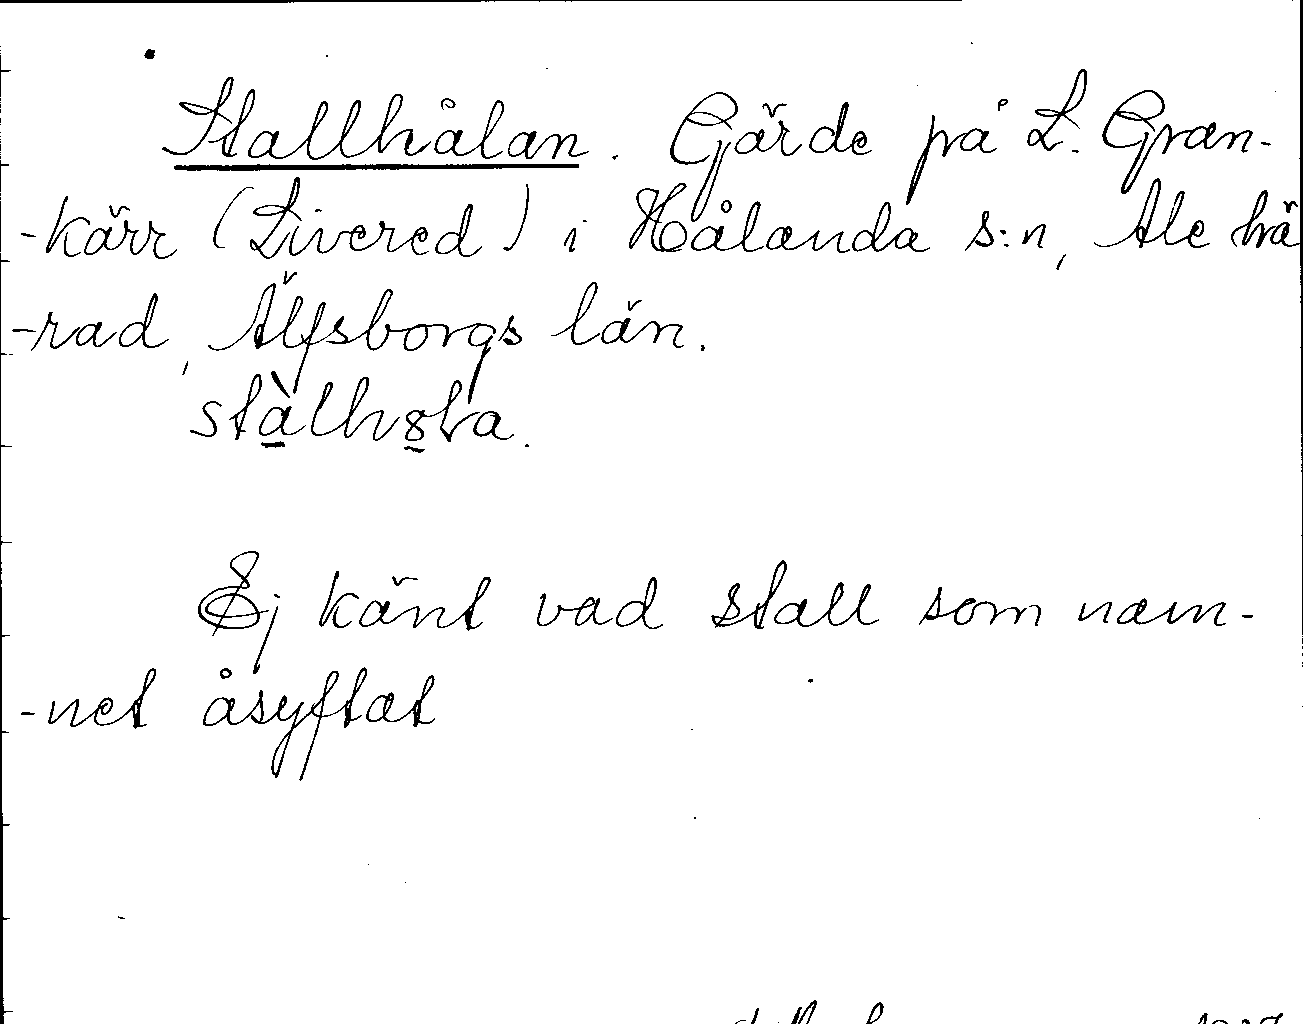 Stallhålan. Gärde på L. Gran-
-kärr (Livered) i Hålanda s:n, Ale hä
-rad, Älfsborgs län.
Ej känt vad stall som nam-
-net åsyftat